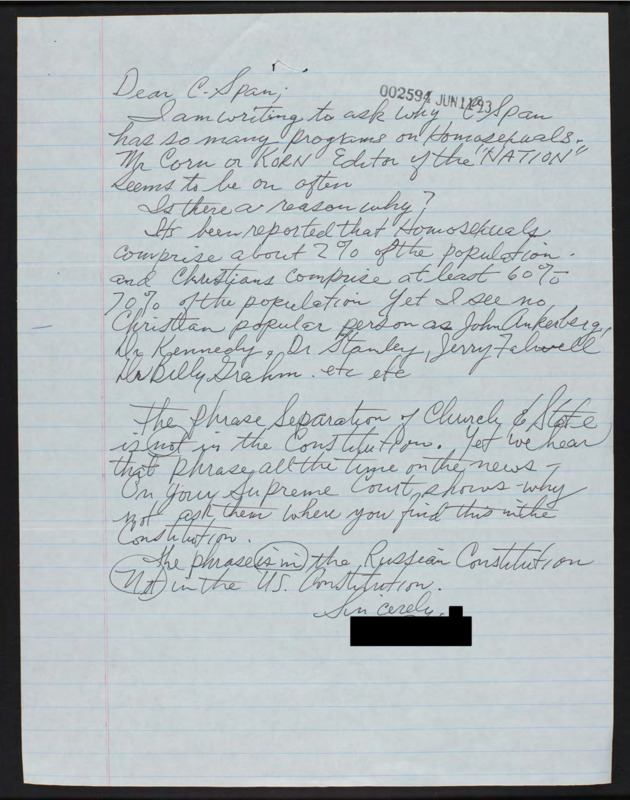 Dear C-Span;
002594 JUN 11 93
I am writing to ask why C-Span
has so many programs on Homosexuals.
Mr Corn or KORN Editor of the "NATION"
seems to be on often
Is there a reason why?
It been reported that Homosexuals
comprise about 2% of the population.
and Christians comprise at least 60%
70% of the population Yet I see no
Christian popular person as John Ankerberg,
Dr Kennedy, Dr Stanley, Jerry Falwell
Dr Billy Grahm. etc etc
The phrase Separation of Church & State
is not in the Constitution. Yet we hear
that phrase all the time on the news -
On your Supreme Court shows - why
not ask them where you find this in the
Constitution.
The phrase is in the Russian Constitution
Not in the U.S. Constitution.
Sincerely,